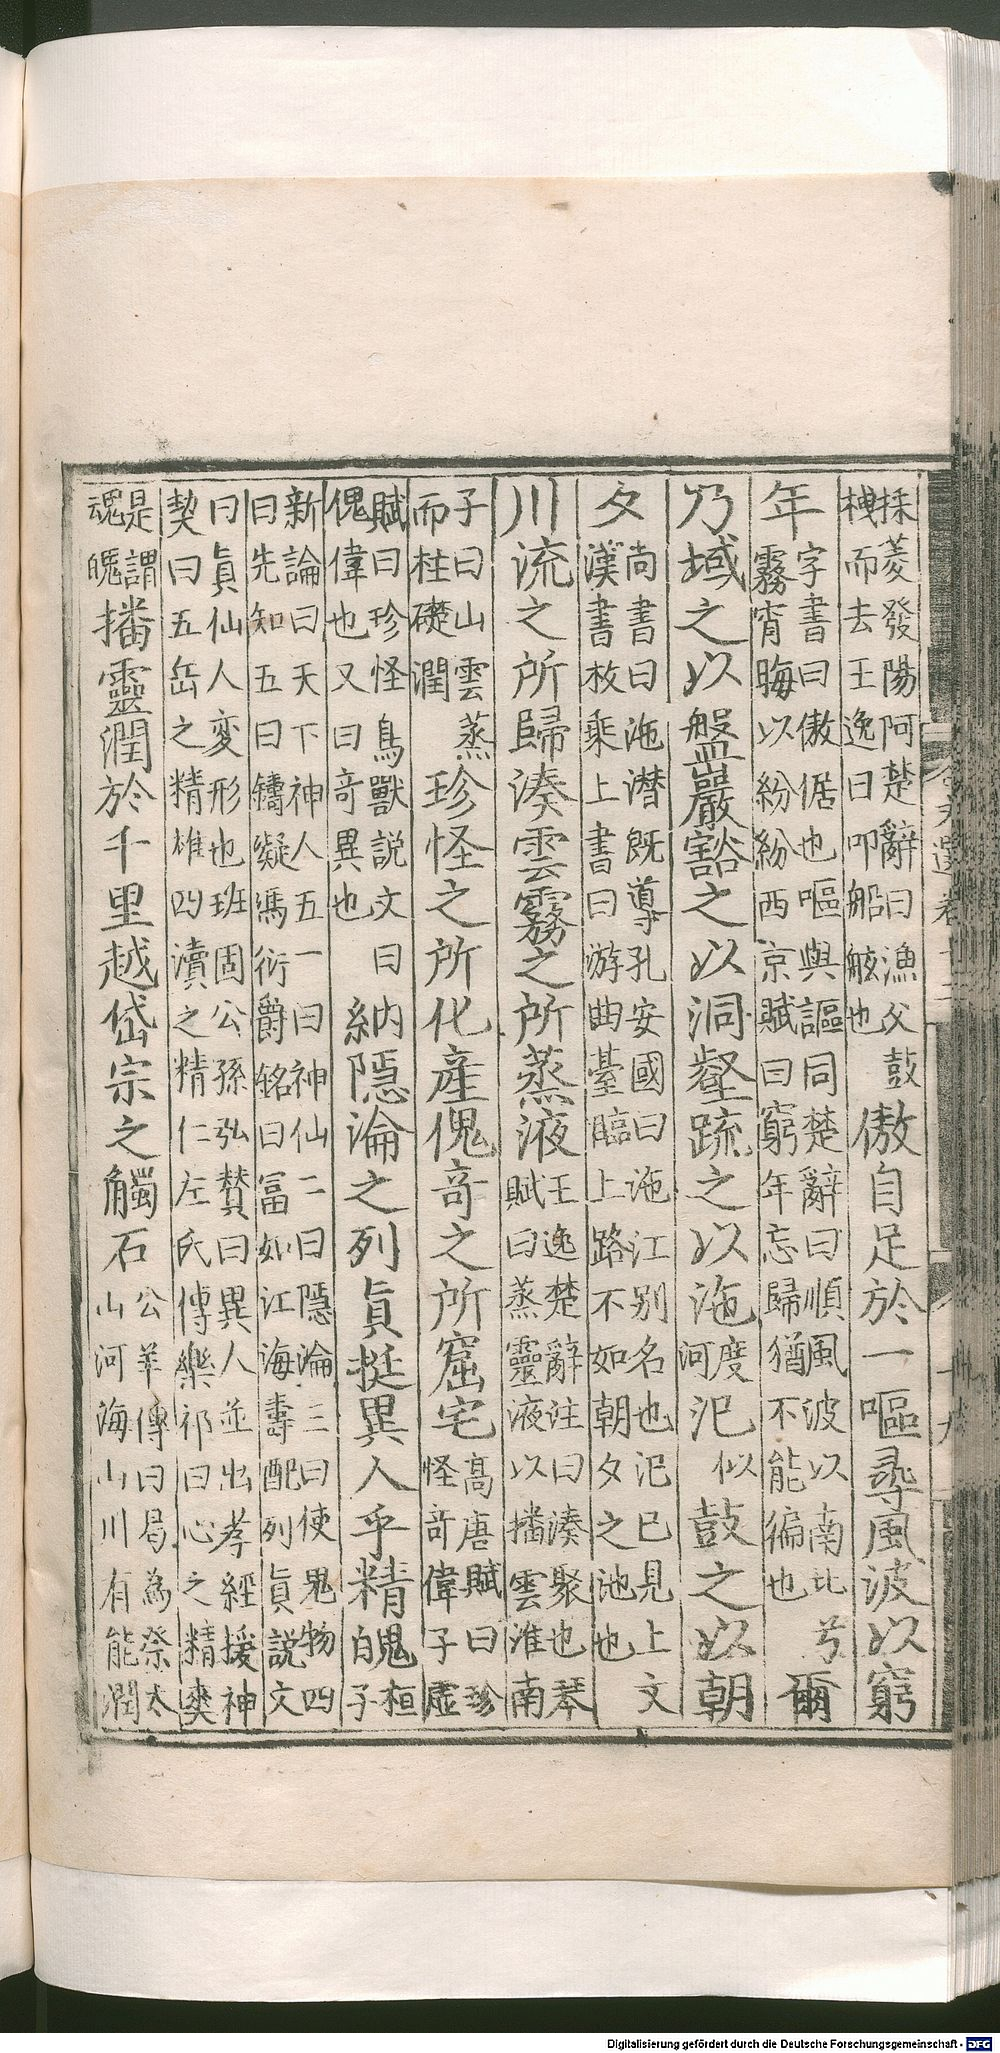 採菱發陽阿楚辭曰漁父鼓
栧而去王逸曰叩船舷也
傲自足於一嘔尋風波以窮
年
字書曰傲倨也嘔與謳同楚辭曰順風波以南北兮
霧宵晦以紛紛西京賦曰窮年忘歸猶不能徧也
爾
乃域之以盤巖豁之以洞壑疏之以沲
度河
汜
似
鼓之以朝
夕
尚書曰沲潛既導孔安國曰沲江别名也汜已見上文
漢書枚乘上書曰游曲臺臨上路不如朝夕之池也
川流之所歸湊雲霧之所蒸液
王逸楚辭注曰湊聚也琴
賦曰蒸靈液以播雲淮南
子曰山雲蒸
而柱礎潤
珍怪之所化産傀奇之所窟宅
高唐賦曰珍
怪奇偉子虛
賦曰珍怪鳥獸説文曰
傀偉也又曰奇異也
納隠淪之列眞挺異人乎精魄
桓
子
新論曰天下神人五一曰神仙二曰隠淪三曰使鬼物四
曰先知五曰鑄凝馮衍爵銘曰冨如江海壽配列眞説文
曰眞仙人変形也班固公孫弘賛曰異人並出孝經援神
契曰五岳之精雄四瀆之精仁左氏傳樂祁曰心之精爽
是謂
魂魄
播靈潤於千里越岱宗之觸石
公羊傳曰曷為祭太
山河海山川有能潤
Digitalisierung gefördert durch die Deutsche Forschungsgemeinschaft - DFG